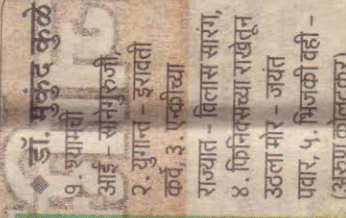 ◆ डॉ. मुकुंद कुळे
१. श्यामची
आई – सानेगुरुजी,
२. युगान्त – इरावती
कर्वे, ३. एन्कीच्या
राज्यात – विलास सारंग,
४. फिनिक्सच्या राखेतून
उठला मोर – जयंत
पवार, ५. भिजकी वही –
(अरुण कोलटकर)